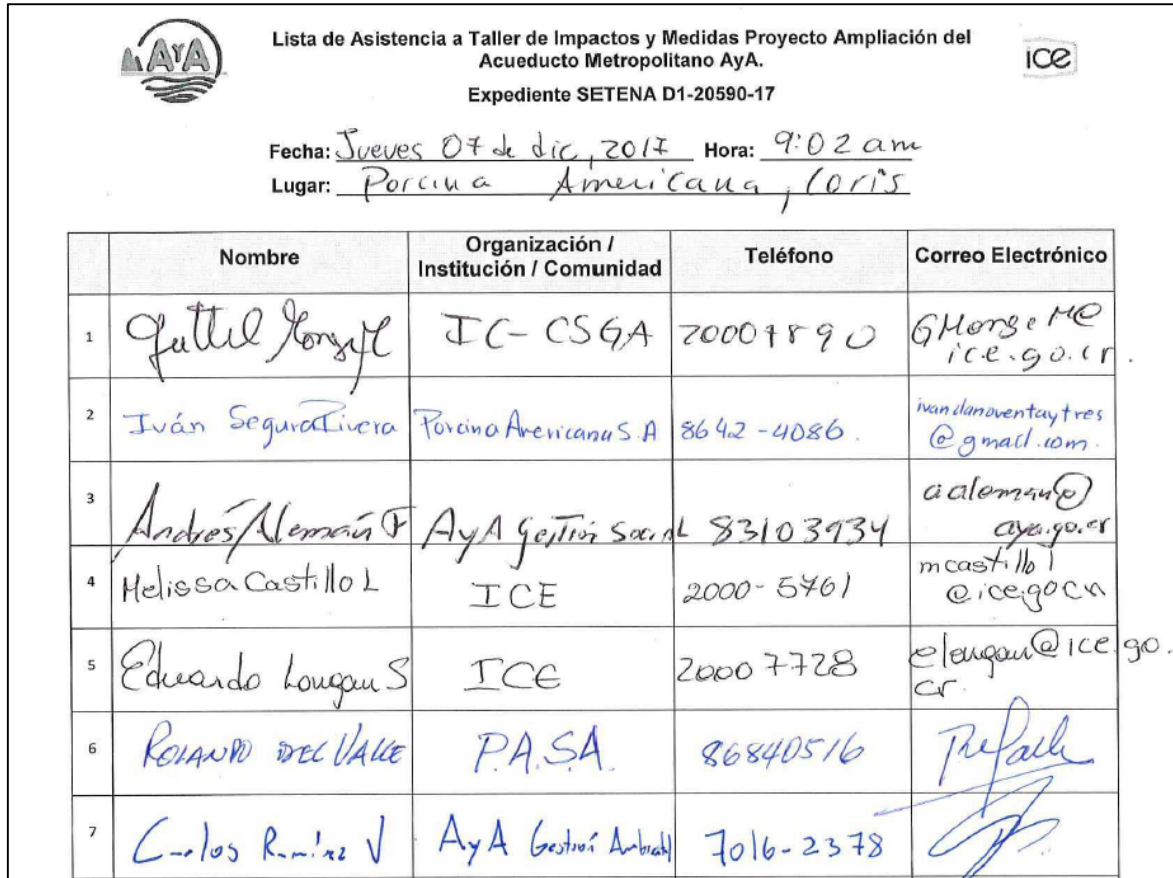 AyA
Lista de Asistencia a Taller de Impactos y Medidas Proyecto Ampliación del
Acueducto Metropolitano AyA.
ice
Expediente SETENA D1-20590-17
Fecha: Jueves 07 de dic, 2017 Hora: 9:02 am
Lugar: Porcina Americana, Coris
Nombre Organización / Institución / Comunidad Teléfono Correo Electrónico
1 IC-CSGA 20007890 GMongeM@
ice.go.cr.
2 Iván Segura Rivera Porcina Americana S.A 8642-4086. ivandanoventaytres
@gmail.com.
3 Andrés Alemán F AyA Gestión Social 83103934 aaleman@
aya.go.cr
4 Melissa Castillo L ICE 2000-5761 mcastillol
@ice.go.cr
5 Eduardo S ICE 20007728 @ice.go.
cr.
6 ROLANDO DEL VALLE P.A.S.A. 86840516
7 Carlos Ramírez V AyA Gestión Ambiental 7016-2378